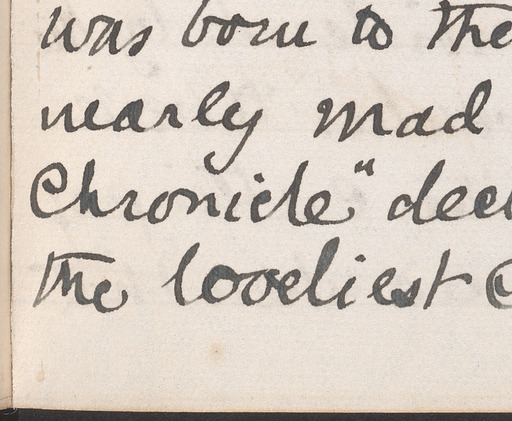 was born to the
nearly mad
Chronicle" decl
the loveliest C